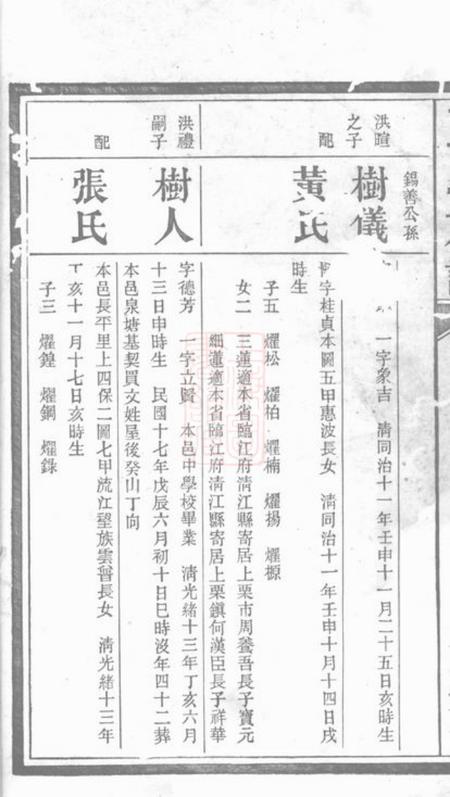 錫善公孫
洪暄之子
樹儀
一字象吉 淸同治十一年壬申十一月二十五日亥時生
配
黃氏
字桂貞本圖五甲惠波長女 淸同治十一年壬申十月十四日戌
時生
子五 燿松 燿柏 燿楠 燿揚 燿榞
女二 三蓮適本省臨江府淸江縣寄居上栗市周聲吾長子寶元
細蓮適本省臨江府淸江縣寄居上栗鎮何漢臣長子祥華
洪禮嗣子
樹人
字德芳 一字立賢 本邑中學校畢業 淸光緖十三年丁亥六月
十三日申時生 民國十七年戊辰六月初十日巳時沒年四十二葬
本邑泉塘基契買文姓屋後癸山丁向
配
張氏
本邑長平里上四保二圖七甲流江望族雲曾長女 淸光緖十三年
丁亥十一月十七日亥時生
子三 燿鍠 燿鋼 燿錄